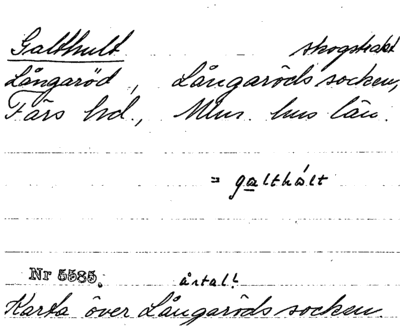 Galthult skogstrakt
Långaröd, Långaröds socken,
Färs hd., Mm. hus län.
= galthólt
Nr 5585. årtal!
Karta över Långaröds socken.